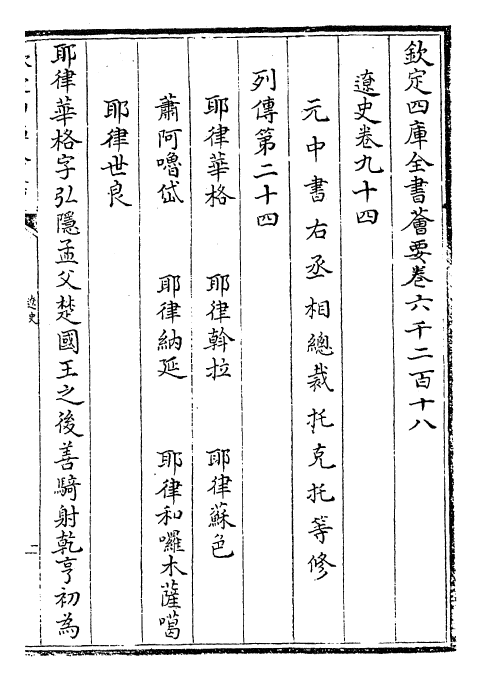 欽定四庫全書薈要卷六千二百十八
遼史卷九十四
元中書右丞相總裁托克托等修
列傳第二十四
耶律華格 耶律斡拉 耶律蘇色
蕭阿嚕岱 耶律納延 耶律和囉木薩噶
耶律世良
耶律華格字弘隱孟父楚國王之後善騎射乾亨初為
遼史
二